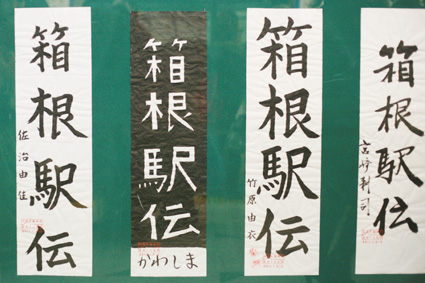 箱根駅伝
佐治由佳
箱根駅伝
かわしま
箱根駅伝
竹原由衣
箱根駅伝